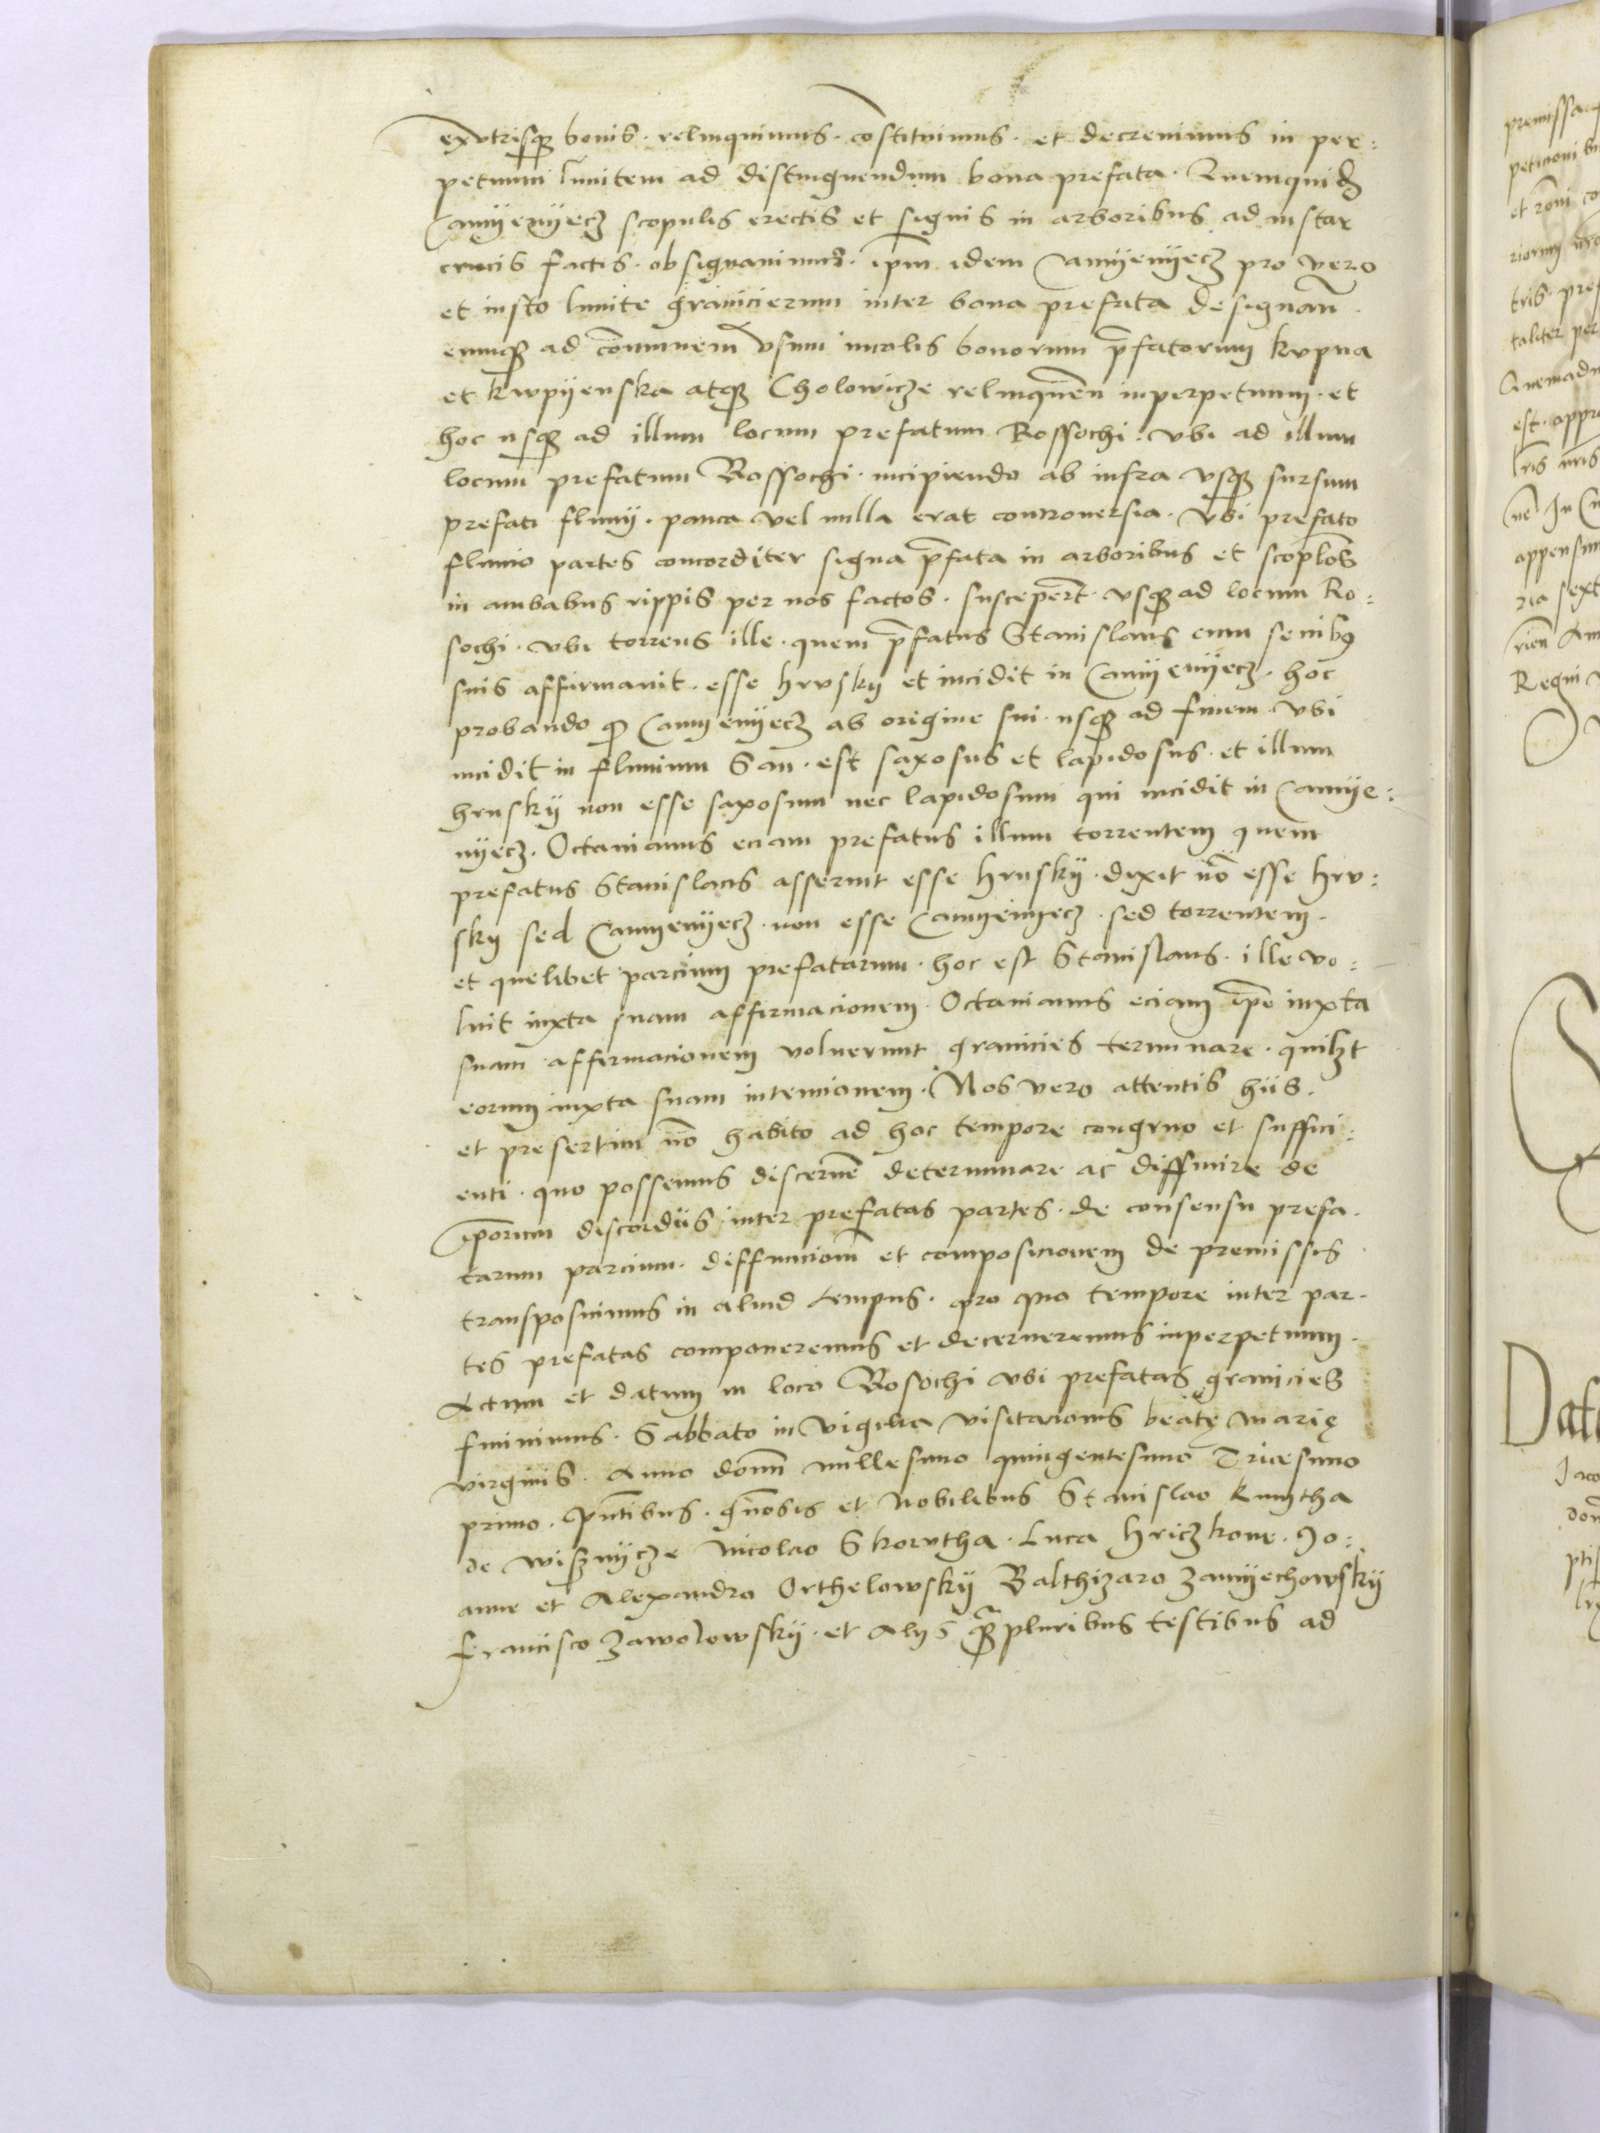 exvtrisq3 bonis · relinquimus · costituimus · et decreuimus in per:
petuum limitem ad distinguendum bona prefata · Quemquid3
Camyenyecz scopulis erectis et signis in arboribus ad instar
crucis factis · obsignauimus · ipm idem Camyenyecz pro vero
et iusto limite granicierum inter bona prefata designan̄ ·
eumq3 ad com̄unem vsum incolis bonorum p̄fatorum krpna
et krpyenska atq3 Cholowicze relinquen̄ inperpetuum · et
hoc usq3 ad illum locum prefatum Rossochi · vbi ad illum
locum prefatum Rossochi · incipiendo ab infra vsq3 sursum
prefati fluuij · pauca vel nulla erat controuersia · Vbi prefato
fluuio partes concorditer signa p̄fata in arboribus et scoplos̄
in ambabus rippis per nos factos · suscepert̄ · vsq3 ad locum Ro:
sochi · vbi torrens ille · quem p̄fatus Stanislaus cum senib9
suis affirmauit · esse hrvsky et incidit in Camyenyecz · hoc
probando q3 Camyenyecz ab origine sui · usq3 ad finem · vbi
incidit in fluuium San · est saxosus et lapidosus · et illum
hrusky non esse saxosum nec lapidosum qui incidit in Camye:
nyecz · Octauianus eciam prefatus illum torrentem quem
prefatus Stanislaus asseruit esse hrusky · dixit nō esse hrv:
sky sed Camyenyecz · non esse Camyenyecz · sed torrentem ·
et quelibet parcium prefatarum · hoc est Stanislaus · ille vo:
luit iuxta suam affirmacionem · Octauianus eciam ipē iuxta
suam affirmacionem voluerunt granicies terminare · quil3t
eorum iuxta suam intencionem · Nos vero attentis hiis ·
et presertim nō habito ad hoc tempore congruo et suffici:
enti · quo possemus discernē determinare ac diffinire de
ip̄orum discordiis inter prefatas partes · de consensu prefa ·
tarum parcium · diffinicionē et composicionem de premissis
transposuimus in aliud tempus · pro quo tempore inter par ·
tes prefatas componeremus et decerneremus inperpetuum ·
Actum et datum in loco Rosochi vbi prefatas granicies
finiuimus · Sabbato in vigilia visitacionis beatę marię
virginis · Anno domī millesimo quingentesimo Tricesimo
primo · Pn̄tibus · gn̄osis et Nobilibus Stanislao kmytha
de wisznycze Nicolao Skorvtha · Luca hriczkone · Jo:
anne et Alexandro Orthelowsky Balthizaro Zamyechowsky
Francisco Zawolowsky · et Alijs q̄3pluribus testibus ad